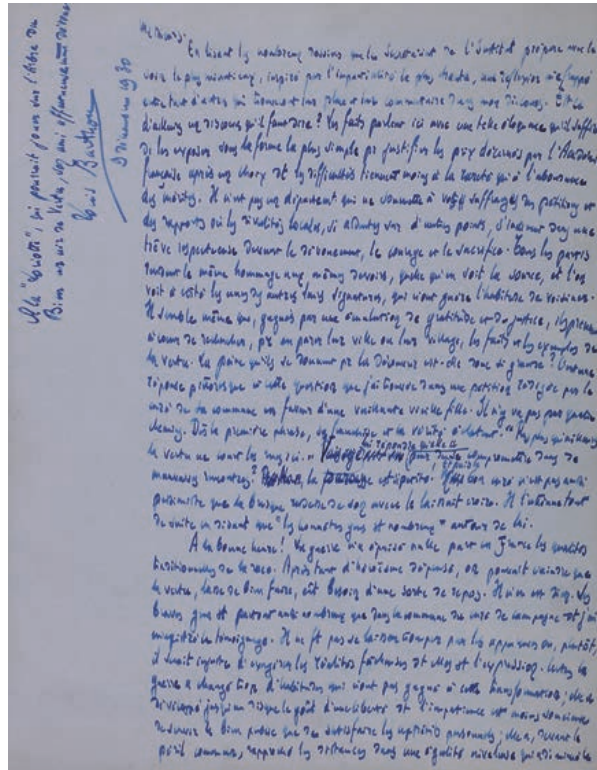 A la "Loriotte", qui pourrait jouer sur l'Arbre du
Bien et de la Vertu, son ami affectueusement dévoué
Louis Barthou
3 Décembre 1930
Messieurs,
En lisant les nombreux dossiers que le Secrétariat de l'Institut prépare avec le
soin le plus minutieux, inspiré par l'impartialité la plus haute, une réflexion m'a frappé
entre tant d'autres qui trouveront leur place et leur commentaire dans mon discours. Est-ce
d'ailleurs un discours qu'il faut dire ? Les faits parlent ici avec une telle éloquence qu'il suffira
de les exposer sous la forme la plus simple pour justifier les prix décernés par l'Académie
française après un choix dont les difficultés tiennent moins à la rareté qu'à l'abondance
des mérites. Il n'est pas un département qui ne soumette à vos suffrages des pétitions et
des rapports où les rivalités locales, si ardentes sur d'autres points, s'inclinent dans une
trêve respectueuse devant le dévouement, le courage et le sacrifice. Tous les partis
rendent le même hommage aux mêmes devoirs, quelle qu'en soit la source, et l'on
voit à côté les unes des autres leurs signatures, qui n'ont guère l'habitude de voisiner.
Il semble même que, gagnés par une émulation de gratitude et de justice, ils prennent
à cœur de revendiquer, pour en parer leur ville ou leur village, les faits et les exemples de
la vertu. La peine qu'ils se donnent pour la découvrir est-elle donc si grande ? C'est une
réponse pittoresque à cette question que j'ai trouvée dans une pétition rédigée par le
curé de sa commune en faveur d'une vaillante vieille fille. Il n'y va pas par quatre
chemins. Dès la première phrase, sa franchise et la vérité éclatent. "
la vertu ne court les rues ici. »
mauvaises rencontres ? la est épurée !
pessimiste que la brusque rudesse de son aveu le laisserait croire. Il l'atténue tout
de suite en disant que "les honnêtes gens sont nombreux" autour de lui.
A la bonne heure ! La guerre n'a épuisé nulle part en France les qualités
traditionnelles de la race. Après tant d'héroïsme dépensé, on pouvait craindre que
la vertu, lasse de bien faire, eût besoin d'une sorte de repos. Il n'en est rien. Les
braves gens sont partout aussi nombreux que dans la commune du curé de campagne dont j'ai
enregistré le témoignage. Il ne faut pas se laisser tromper par les apparences ou, plutôt,
il serait injuste d'exagérer les réalités fâcheuses dont elles sont l'expression. Certes la
guerre a changé trop d'habitudes qui n'ont pas gagné à cette transformation ; elle a
développé jusqu'au risque le goût d'une liberté dont l'impatience est moins soucieuse
de servir le bien public que de satisfaire les appétits personnels ; elle a, devant le
péril commun, rapproché les distances dans une égalité niveleuse qui a diminué le